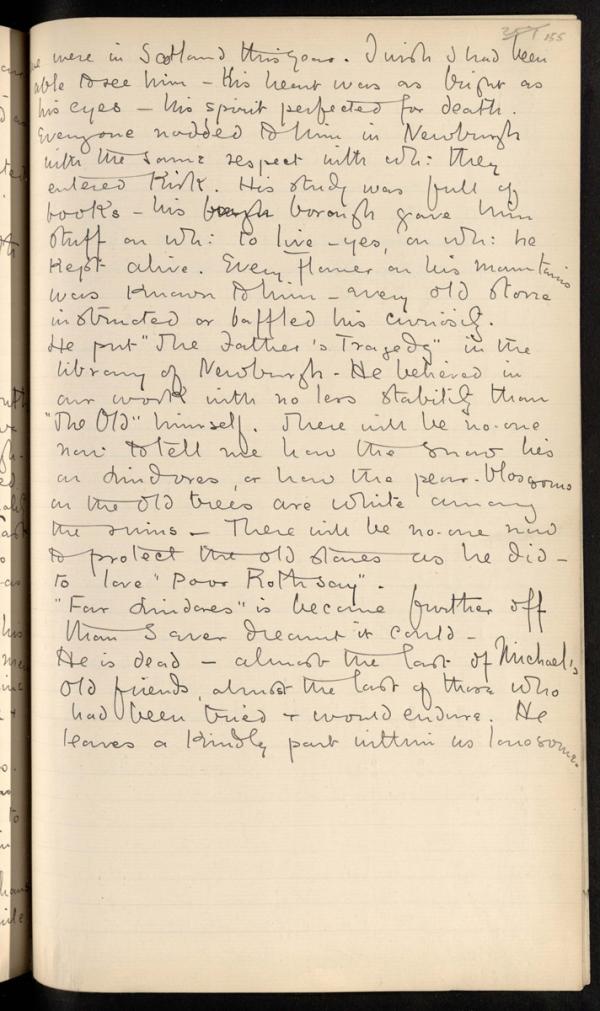 155
we were in Scotland this year. I wish I had been
able to see him – his heart was as bright as
his eyes – his spirit perfected for death.
Everyone nodded to him in Newburgh
with the same respect with wh: they
entered Kirk. His study was full of
books – his borough gave him
stuff on wh: to live – yes, on wh: he
kept alive. Every flower on his mountains
was known to him – every old stone
instructed or baffled his curiosity.
He put "The Father's Tragedy" in the
library of Newburgh – He believed in
our work with no less stability than
"The Old" himself. There will be no-one
now to tell me how the snow lies
on Lindores, or how the pear-blossoms
on the old trees are white among
the ruins – There will be no-one now
to protect the old stones as he did –
to love "Poor Rothsay".
"Far Lindores" is become further off
than I ever dreamt it could –
He is dead – almost the last of Michael's
old friends, almost the last of those who
had been tried + would endure. He
leaves a kindly part within us lonesome.